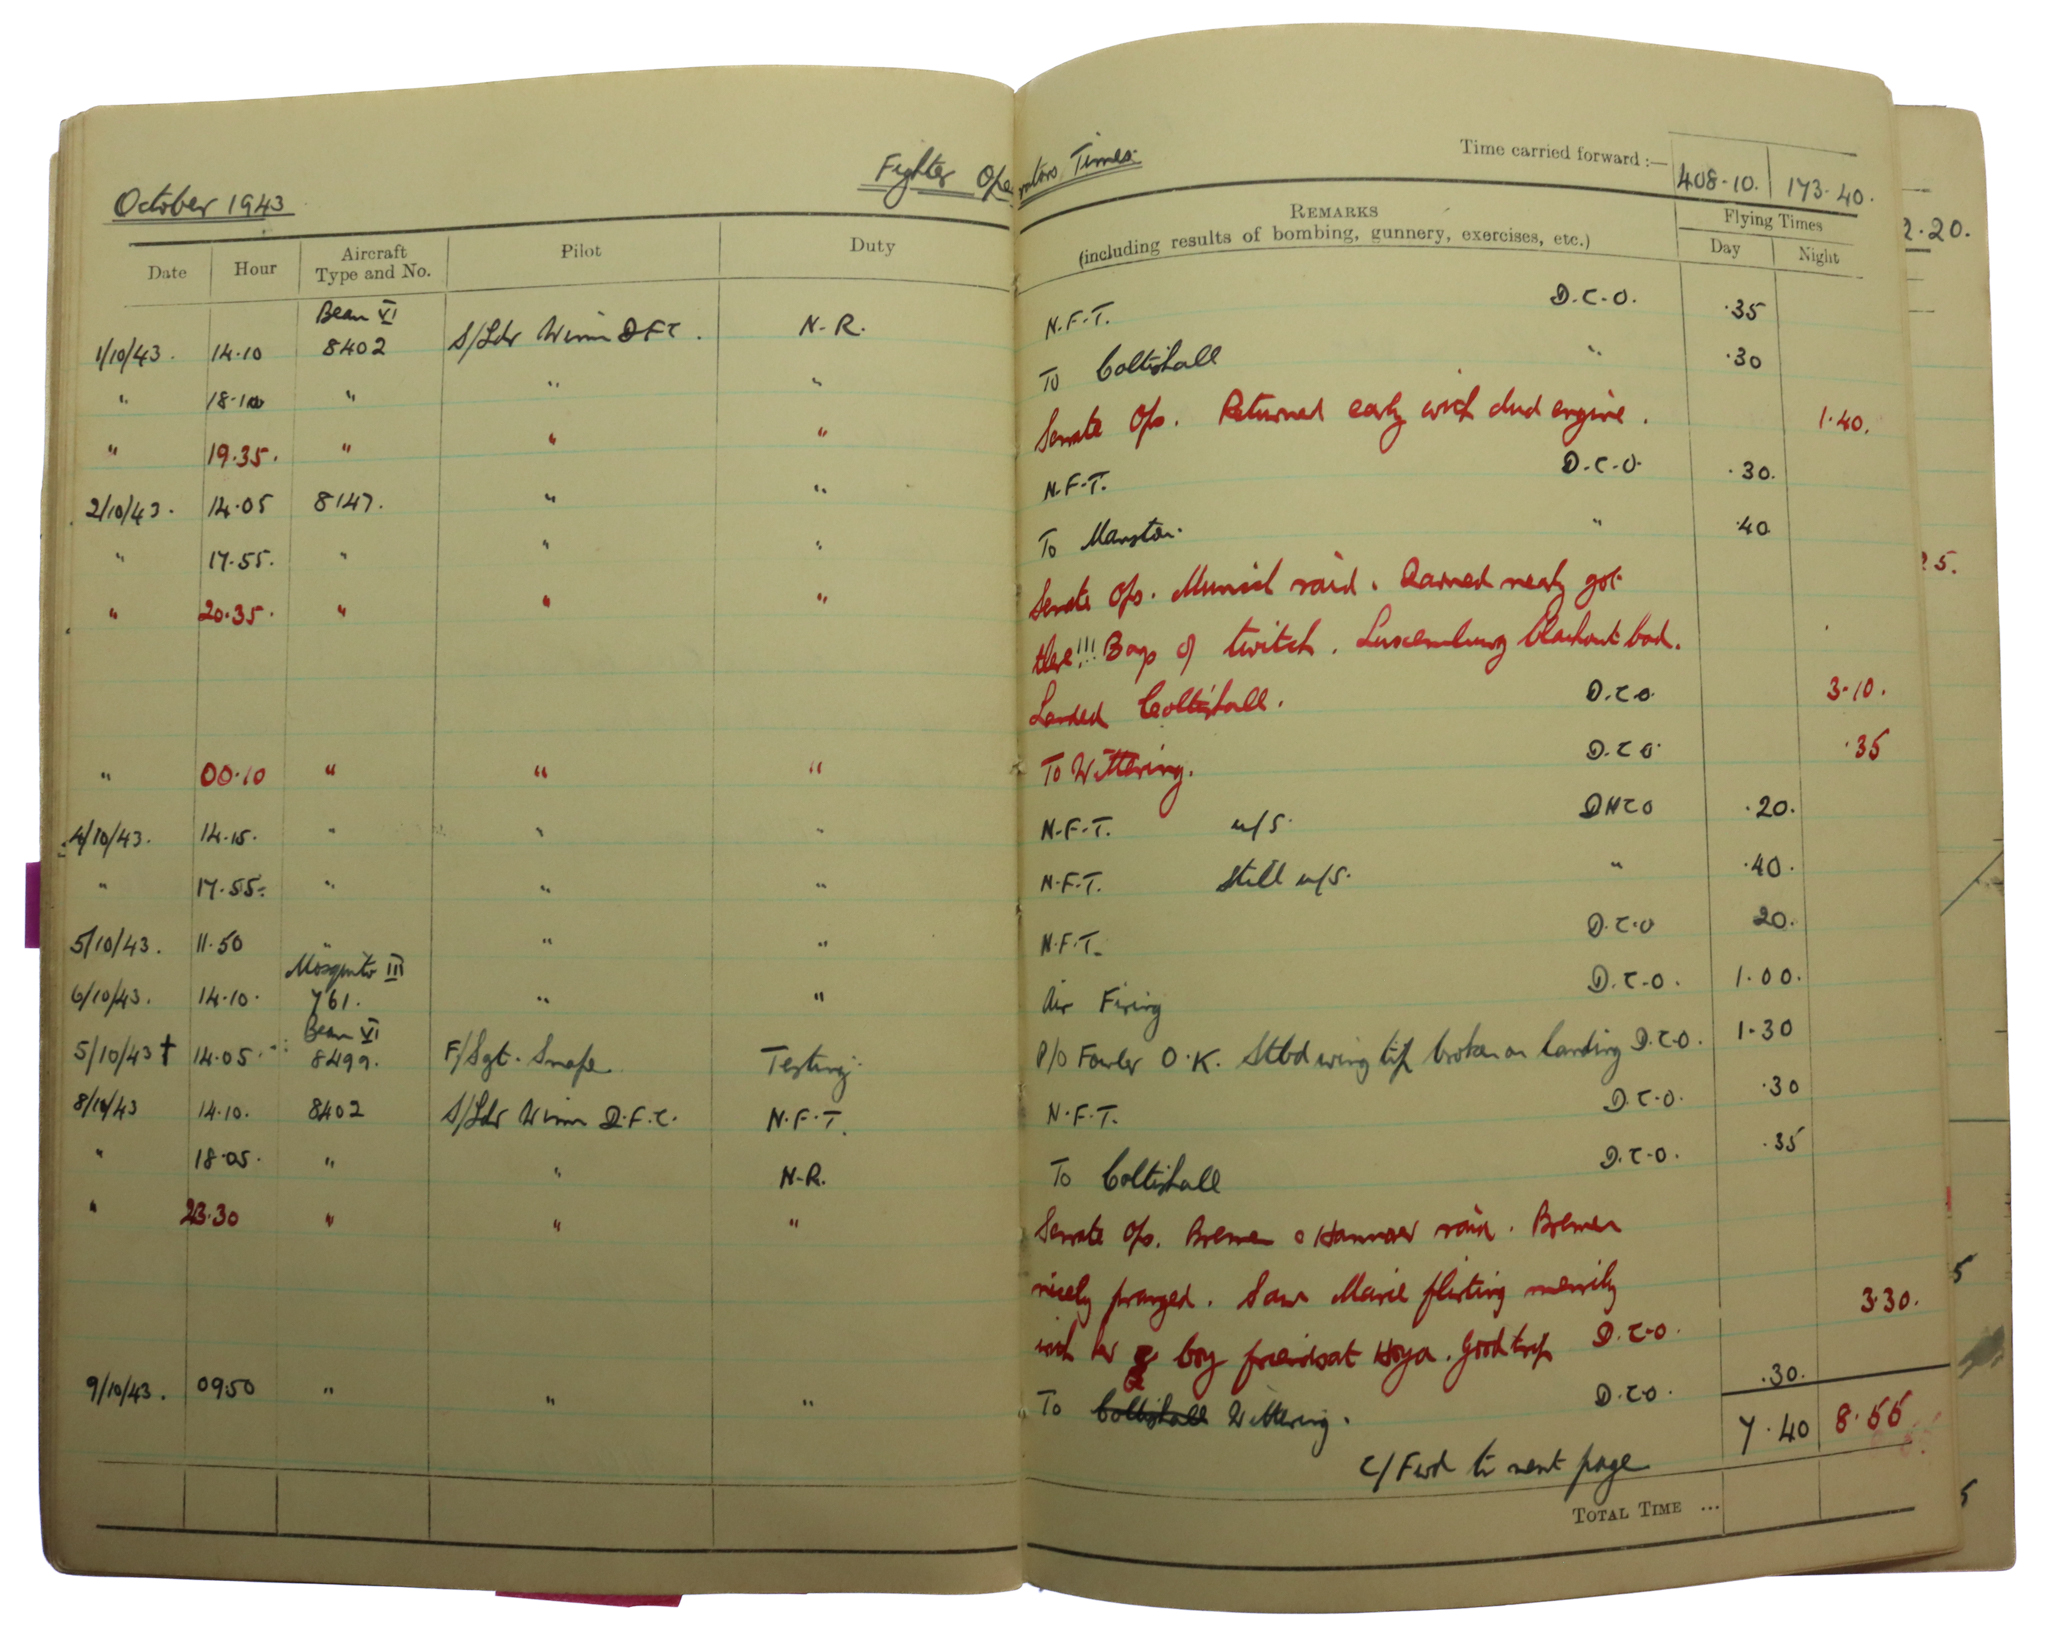 Fighter Operators Times.
October 1943
Time carried forward :— 408·10. 173·40.
Date Hour Aircraft Type and No. Pilot Duty REMARKS (including results of bombing, gunnery, exercises, etc.) Flying Times Day Night
Beau VI
1/10/43. 14·10 8402 S/Ldr Winn D.F.C. N.R. N.F.T. D.C.O. ·35
" 18·10 " " " To Coltishall " ·30
" 19·35. " " " Serrate Ops. Returned early with dud engine. 1·40.
2/10/43. 14·05 8147. " " N.F.T. D.C.O. ·30.
" 17·55. " " " To Manston. " ·40
" 20·35. " " " Serrate Ops. Munich raid. Darned nearly got
there!!! Bags of twitch. Luxemburg blackout bad.
Landed Coltishall. D.C.O 3·10.
" 00·10 " " " To Wittering. D.C.O. ·35
4/10/43. 14·15. " " " N.F.T. u/s. DNCO ·20.
" 17·55. " " " N.F.T. Still u/s. " ·40.
5/10/43. 11·50 " " " N.F.T. D.C.O 20.
Mosquito III
6/10/43. 14·10. 761. " " Air Firing D.C.O. 1·00.
Beau VI
5/10/43† 14·05. 8499. F/Sgt. Snape Testing P/O Fowler O.K. Stbd wing tip broken on landing D.C.O. 1·30
8/10/43 14·10. 8402 S/Ldr Winn D.F.C. N.F.T. N.F.T. D.C.O. ·30
" 18·05. " " N.R. To Coltishall D.C.O. ·35
" 23·30 " " " Serrate Ops. Bremen & Hannover raid. Bremen
nicely pranged. Saw Marie flirting merrily 3·30.
with her boy friends at Hoya. Good trip D.C.O.
9/10/43. 09·50 " " " To Coltishall Wittering. D.C.O. ·30.
7·40 8·55
C/Fwd to next page
TOTAL TIME ...
2·20.
5.
5
5